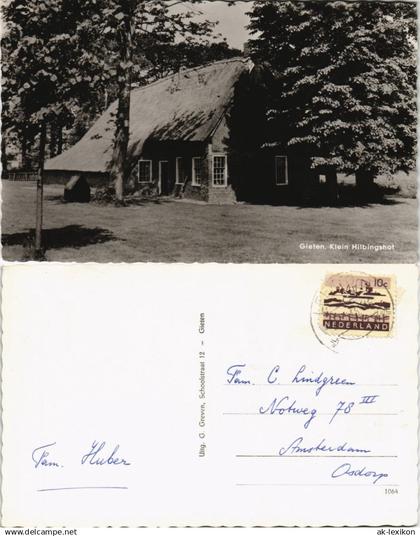 Gieten, Klein Hilbingshof
10c
NEDERLAND
Uitg. G. Greven, Schoolstraat 12 - Gieten
Fam. C. Lindgreen
Notweg 78 III
Amsterdam
Osdorp
Fam. Huber
1064
© www.ak-lexikon.de